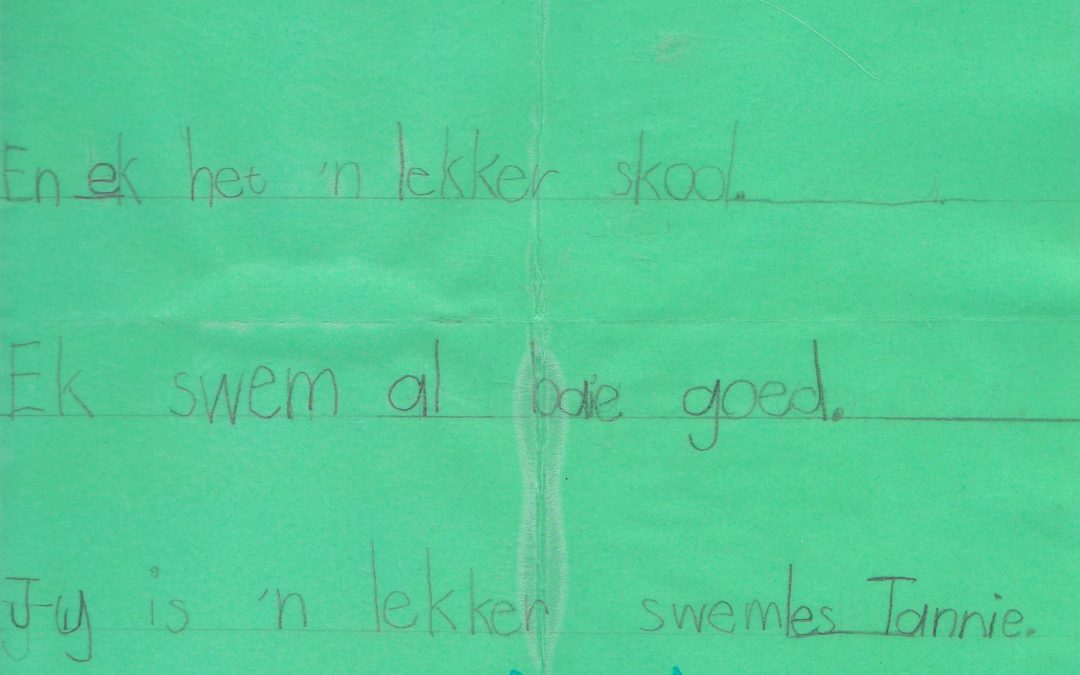 En ek het 'n lekker skool.
Ek swem al baie goed.
Jy is 'n lekker swemles Tannie.